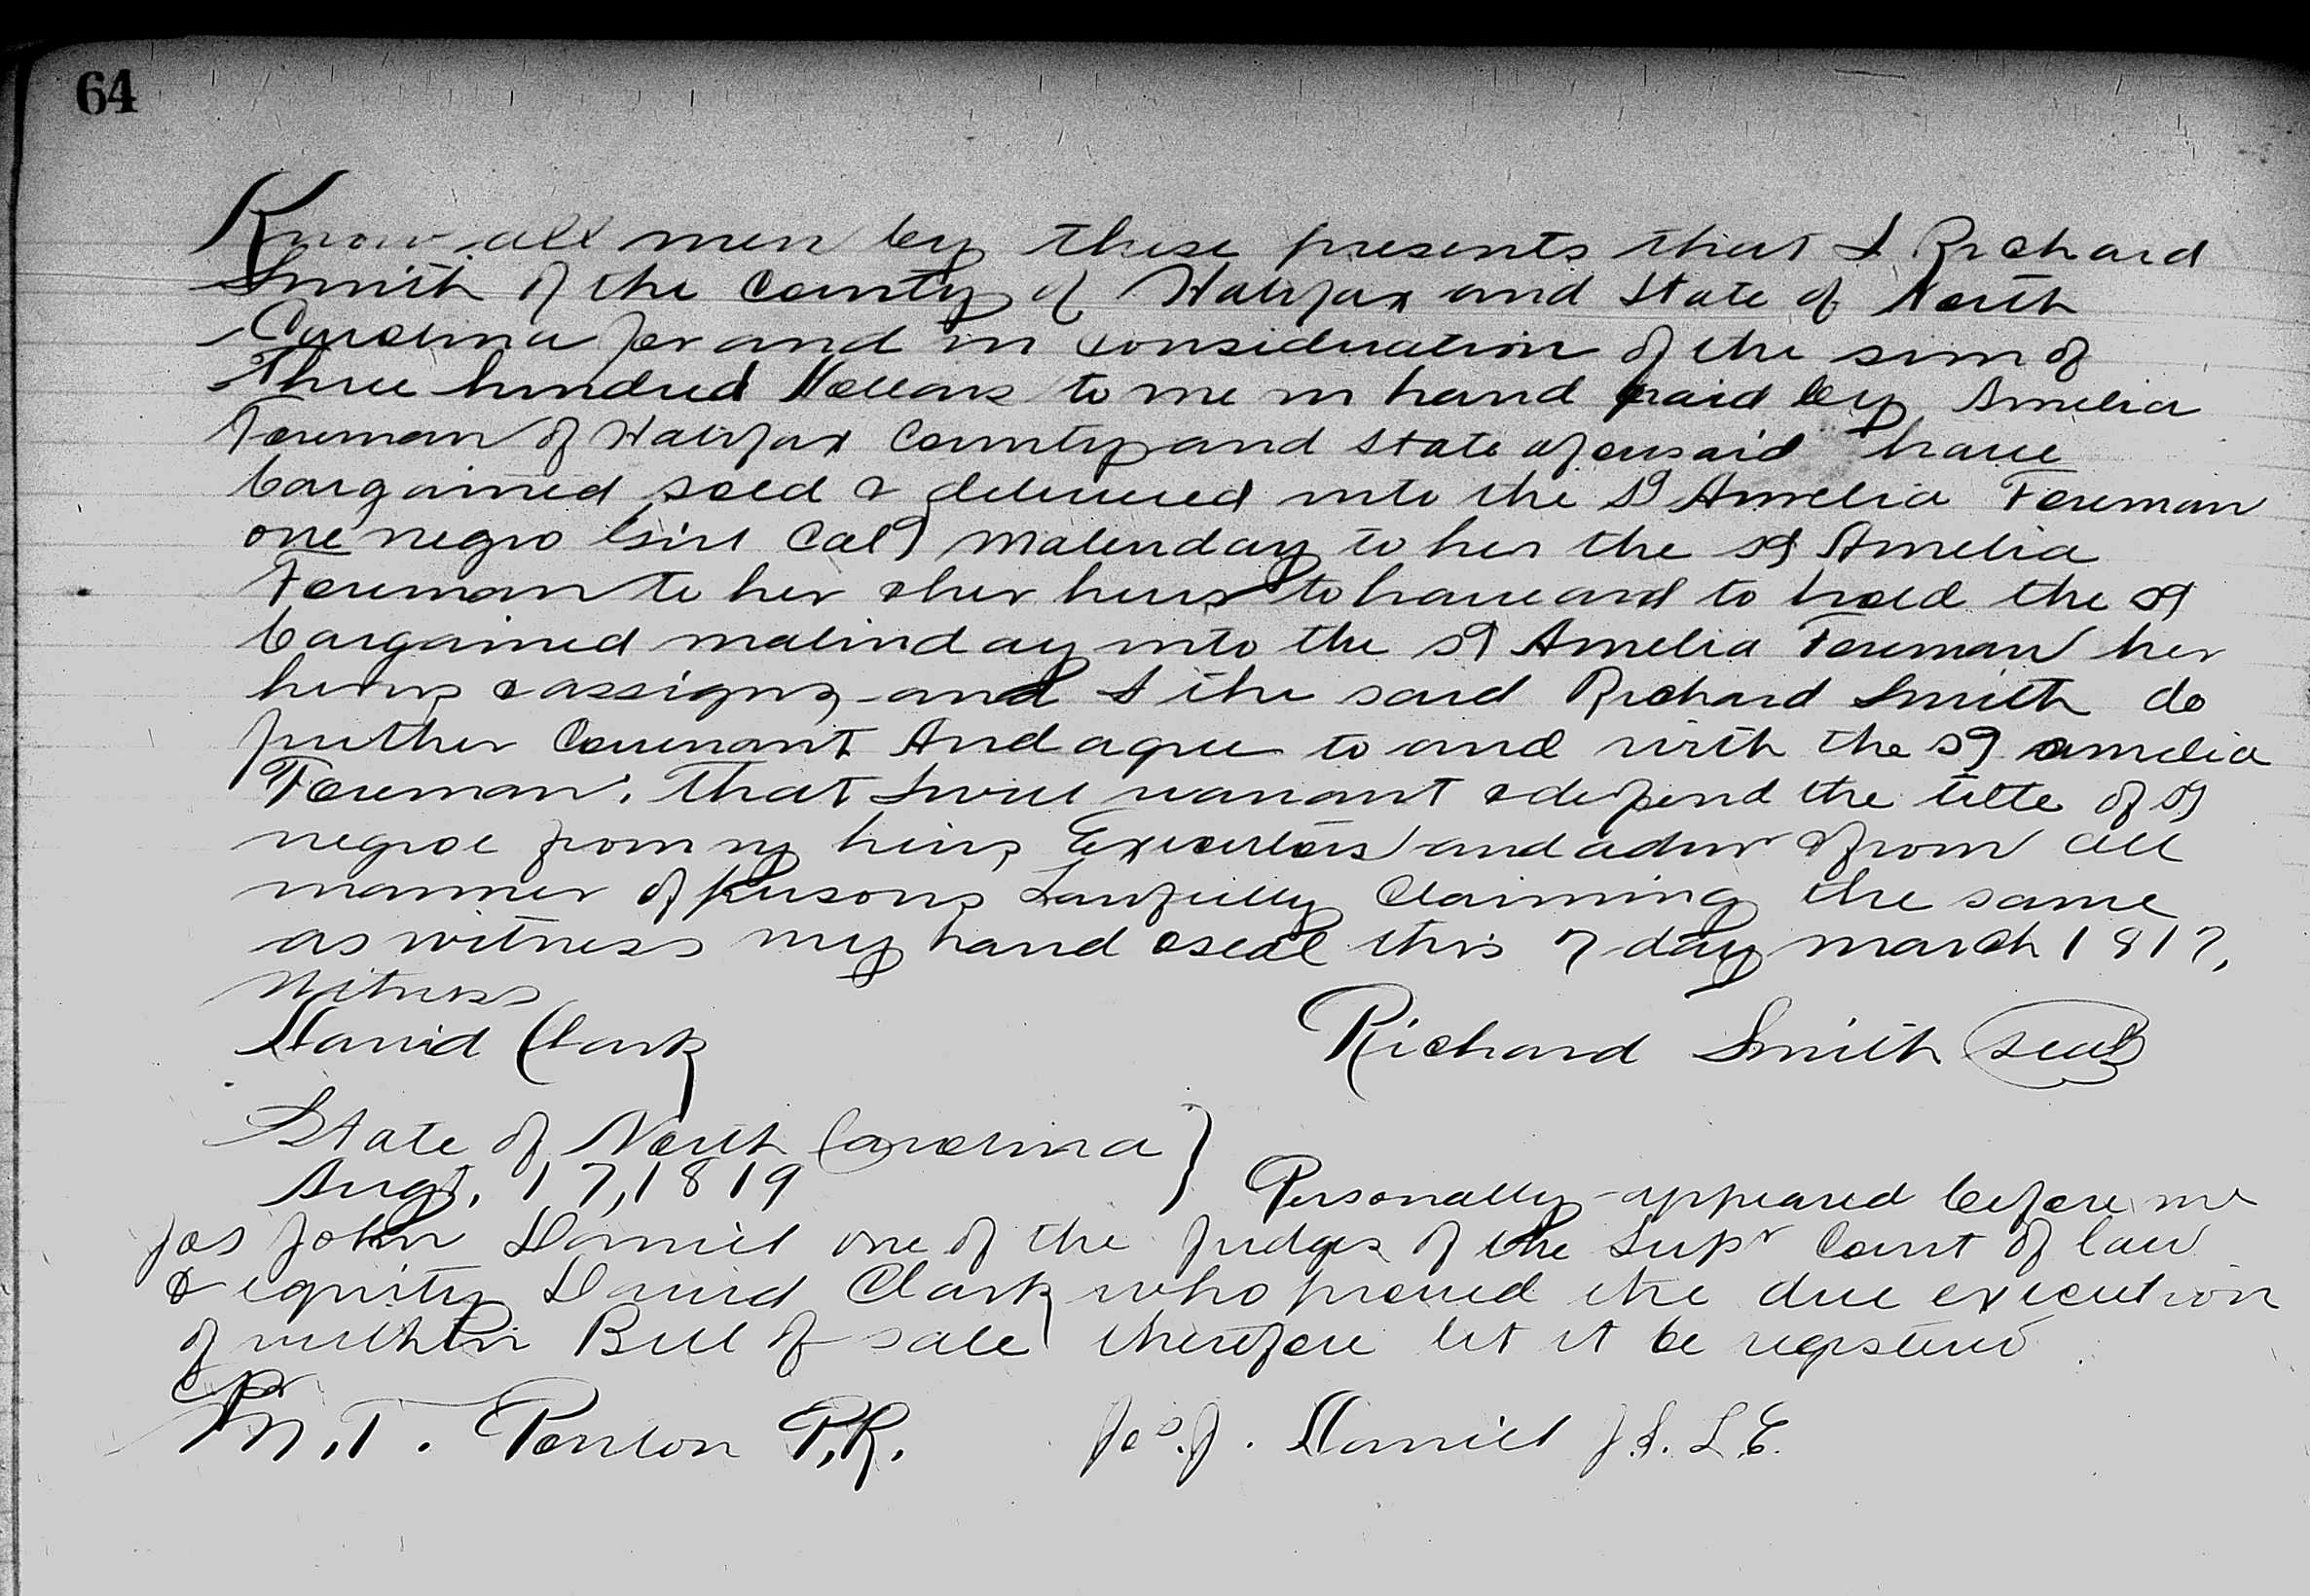 64
Know all men by these presents that I Richard
Smith of the County of Halifax and State of North
Carolina for and in consideration of the sum of
Three hundred Dollars to me in hand paid by Amelia
Foreman of Halifax County and State aforesaid have
bargained sold & delivered unto the sd Amelia Foreman
one negro Girl Cald Malinday to her the sd Amelia
Foreman to her & her heirs to have and to hold the sd
bargained malinday unto the sd Amelia Foreman her
heirs & assigns and I the said Richard Smith do
further Covenant And agree to and with the sd amelia
Foreman. That I will warrant & defend the title of sd
negroe from my heirs, Executors and admr & from all
manner of persons Lawfully Claiming the same
as witness my hand & seal this 7 day march 1817,
Witness
David Clark Richard Smith Seal
State of North Carolina }
Augt. 17, 1819 Personally appeared before me
Jos John Daniel one of the Judges of the Supr Court of law
& equity David Clark who proved the due execution
of within Bill of sale therefore let it be registered
M. T. Ponton P.R. Jos. J. Daniel J.S.L.E.